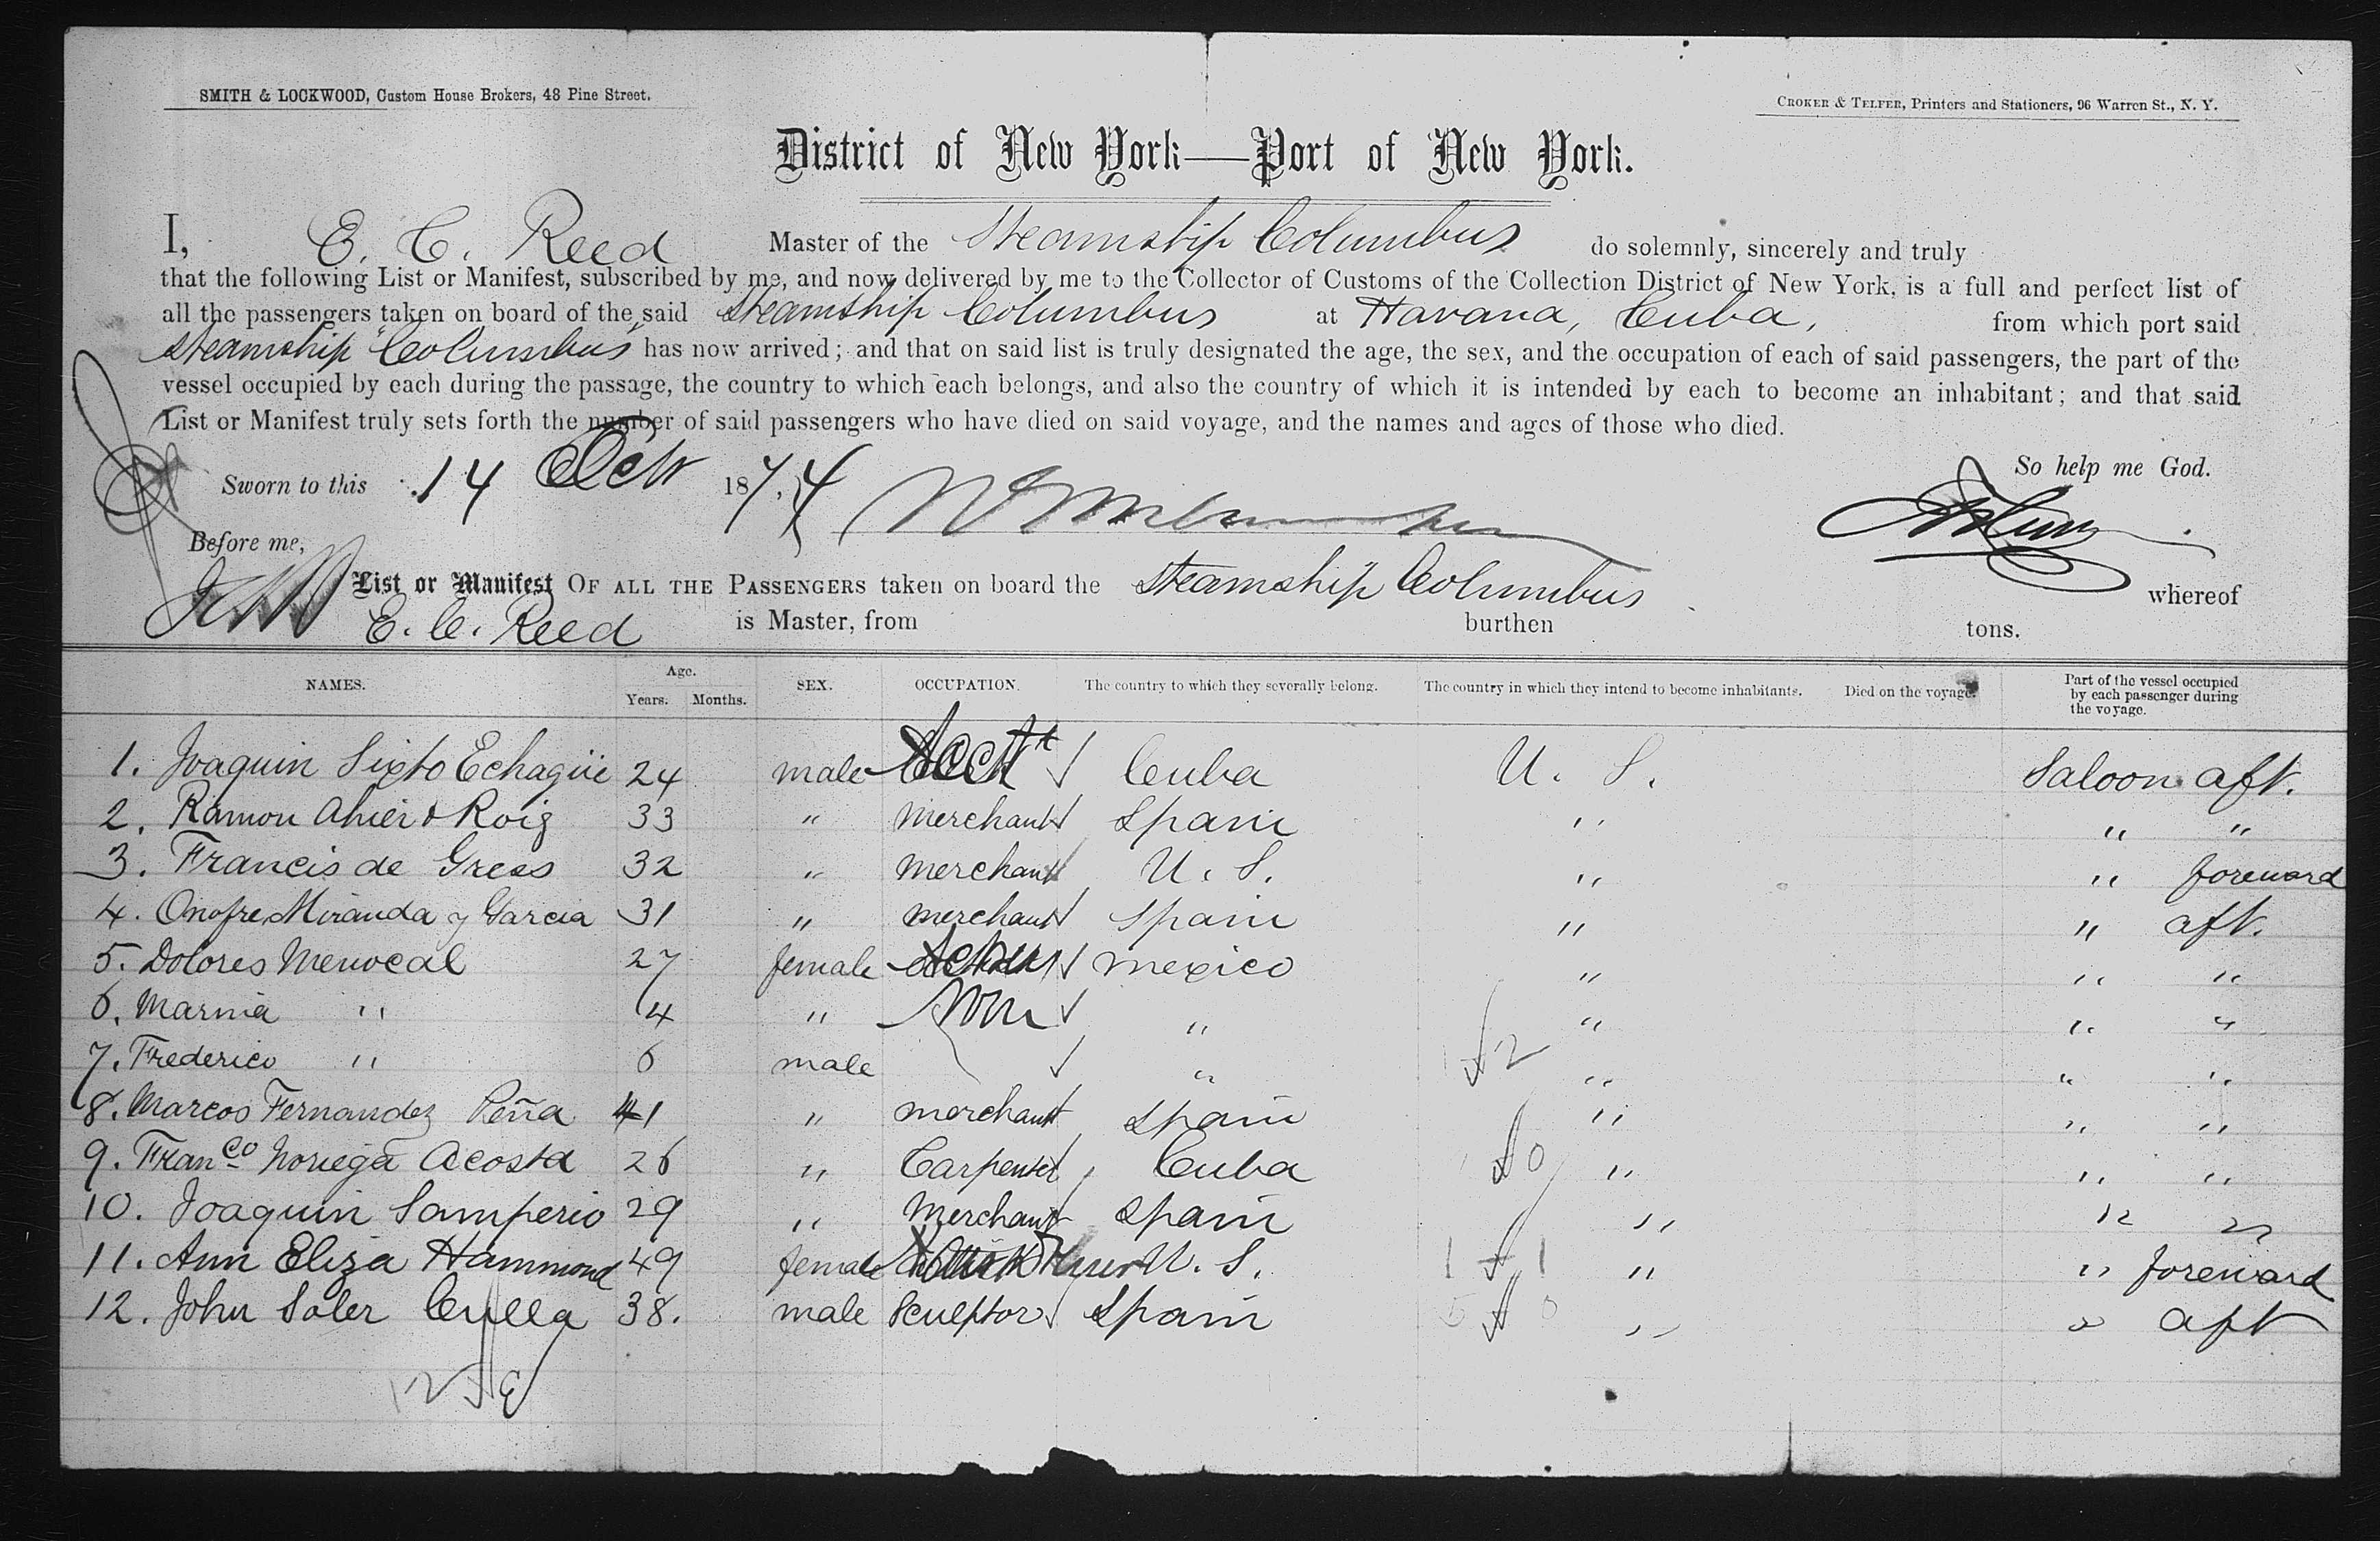 SMITH & LOCKWOOD, Custom House Brokers, 48 Pine Street.
CROKER & TELFER, Printers and Stationers, 96 Warren St., N. Y.
District of New York—Port of New York.
I, E. C. Reed Master of the Steamship Columbus do solemnly, sincerely and truly
that the following List or Manifest, subscribed by me, and now delivered by me to the Collector of Customs of the Collection District of New York, is a full and perfect list of
all the passengers taken on board of the said Steamship Columbus at Havana, Cuba, from which port said
Steamship "Columbus" has now arrived; and that on said list is truly designated the age, the sex, and the occupation of each of said passengers, the part of the
vessel occupied by each during the passage, the country to which each belongs, and also the country of which it is intended by each to become an inhabitant; and that said
List or Manifest truly sets forth the number of said passengers who have died on said voyage, and the names and ages of those who died.
So help me God.
Sworn to this 14 Oct 1874
Before me,
List or Manifest OF ALL THE PASSENGERS taken on board the Steamship Columbus whereof
E. C. Reed is Master, from burthen tons.
NAMES. Age. Years. Months. SEX. OCCUPATION. The country to which they severally belong. The country in which they intend to become inhabitants. Died on the voyage. Part of the vessel occupied by each passenger during the voyage.
1. Joaquin Sixto Echagüe 24 male Acct Cuba U. S. Saloon aft.
2. Ramon Roig 33 " merchant Spain " " "
3. Francis de Gress 32 " merchant U. S. " " foreward
4. Onofre Miranda y Garcia 31 " merchant Spain " " aft.
5. Dolores Menocal 27 female Mexico " " "
6. Marnia " 4 " " " " "
7. Frederico " 6 male " " " "
8. Marcos Fernandez Peña 41 " merchant Spain " " "
9. Franco Noriega Acosta 26 " Carpenter Cuba " " "
10. Joaquin Samperio 29 " Merchant Spain " " "
11. Ann Eliza Hammond 49 female U. S. " " foreward
12. John Soler Culla 38. male Sculptor Spain " " aft